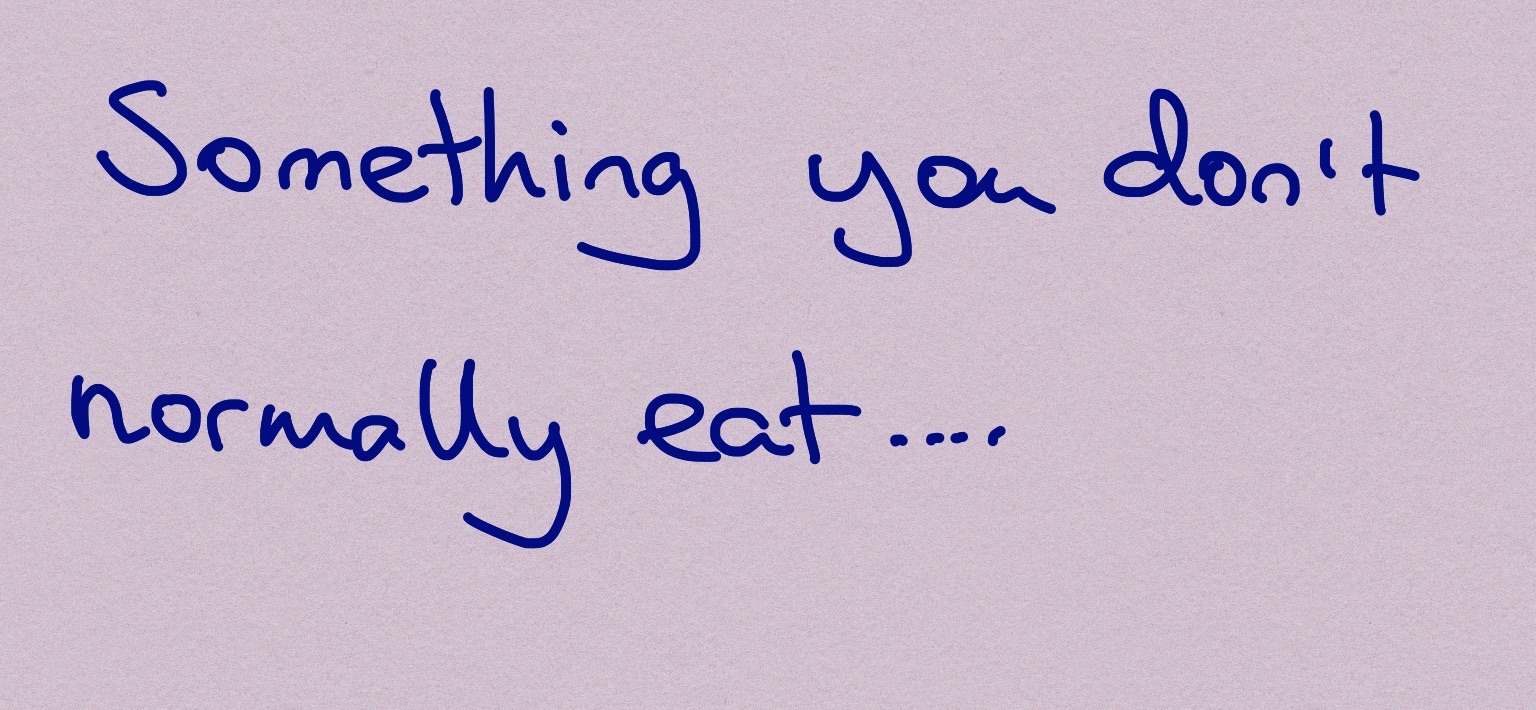 Something you don't
normally eat....